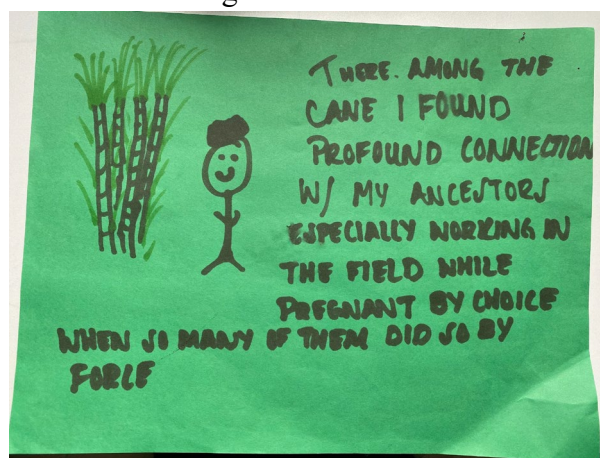 THERE. AMONG THE
CANE I FOUND
PROFOUND CONNECTION
W/ MY ANCESTORS
ESPECIALLY WORKING IN
THE FIELD WHILE
PREGNANT BY CHOICE
WHEN SO MANY OF THEM DID SO BY
FORCE